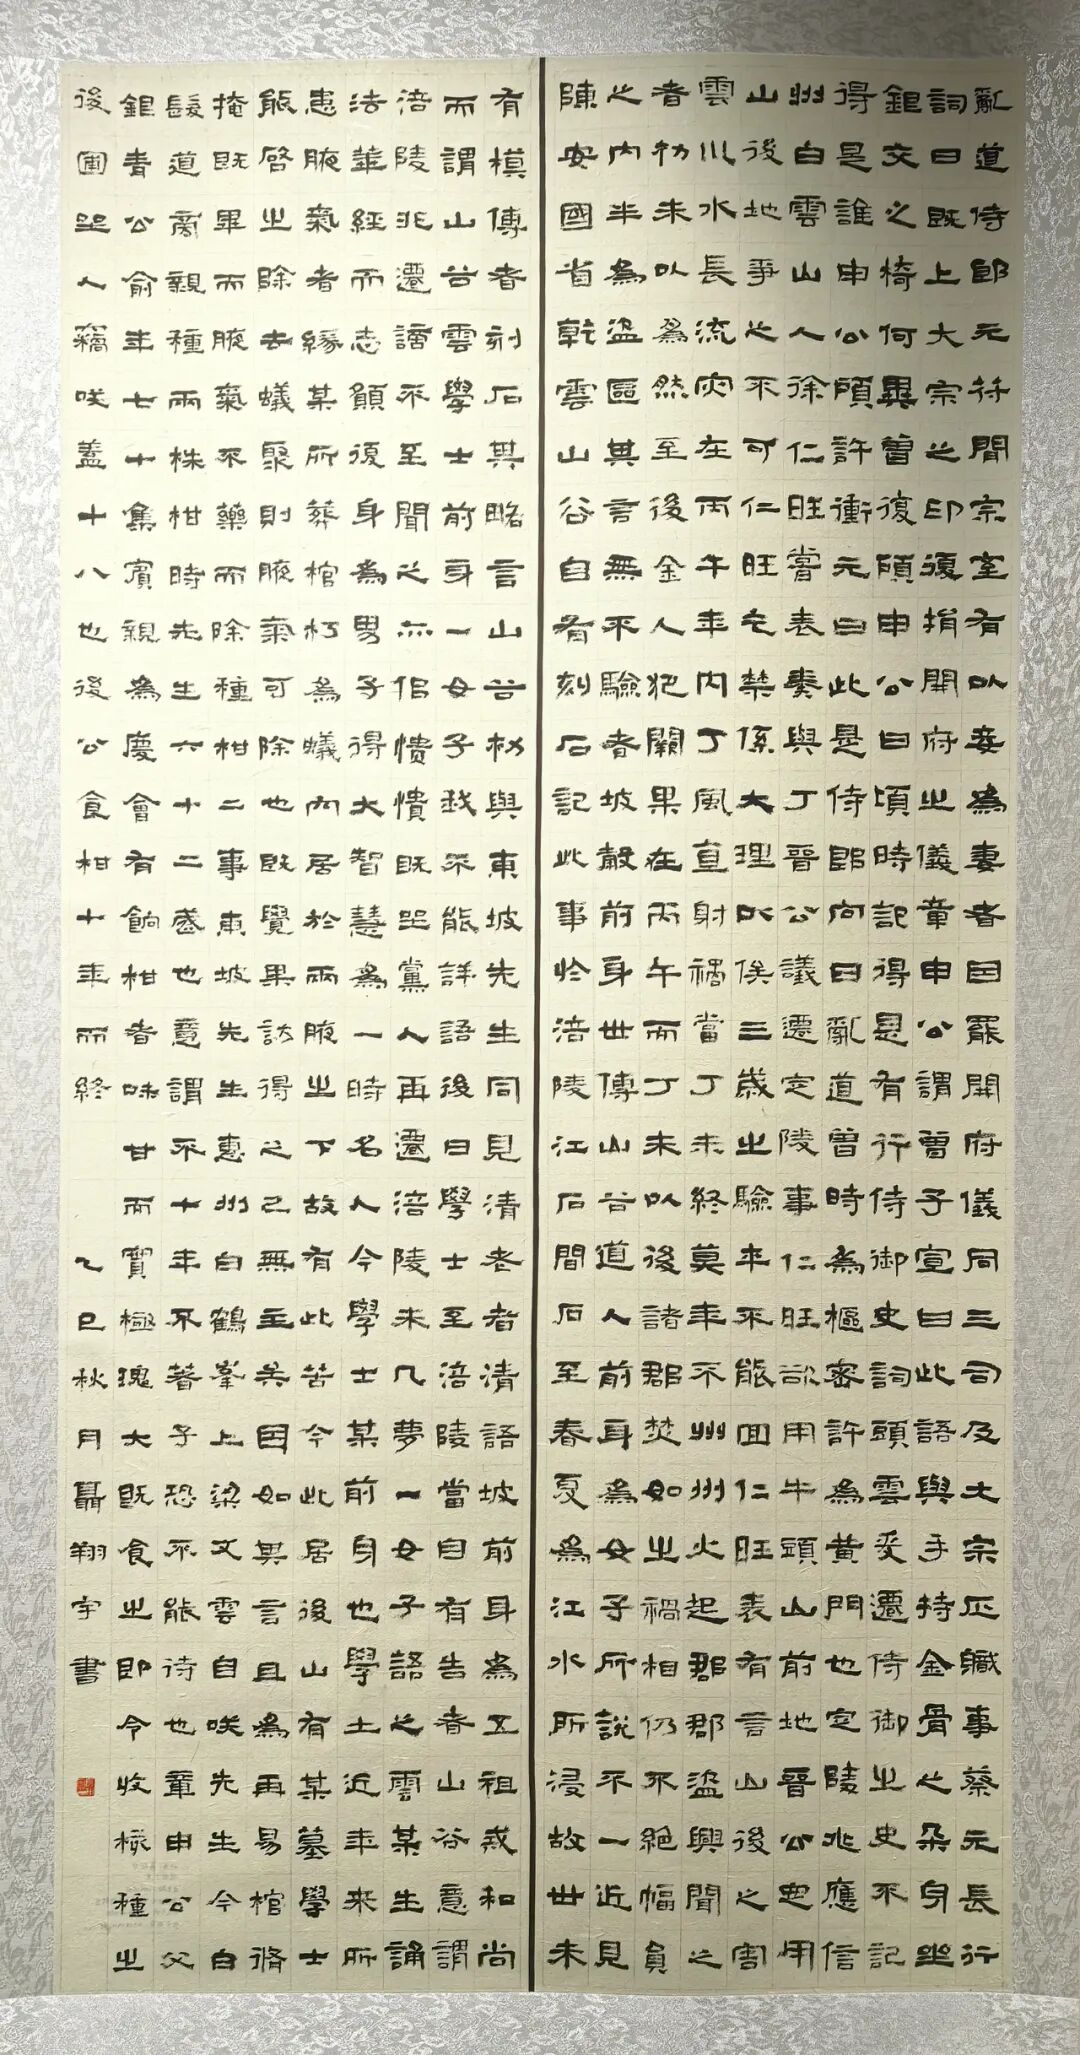 亂道侍郎元符間宗室有以妾為妻者因罷開府儀同三司及大宗正職事蔡元長行
詞曰既上大宗之印復捐開府之儀章申公謂曾子宣曰此語與手持金骨之朵身坐
鉏交之椅何異曾復碩申公曰頃時記得是有行侍御史詞頭雲爰遷侍御之史不記
得是誰申公碩許衝元曰此是侍郎向曰亂道曾時為樞密許為黃門也定陵兆應信
州白雲山人徐仁旺嘗表奏與丁晉公議遷定陵事仁旺欲用牛頭山前地晉公定用
山後地爭之不可仁旺乞禁係大理以俟三歲之驗卒不能回仁旺表有言山後之害
雲川水長流灾在丙午年內丁風直射禍當丁未終莫年不州州火起郡郡盜興聞之
者初未以為然至後金人犯闕果在丙午而丁未以後諸郡焚如之禍相仍不絕幅員
之內半為盜區其言無不驗者坡穀前身世傳山谷道人前身為女子所說不一近見
陳安國省乾雲山谷自有刻石記此事於涪陵江石間石至春夏為江水所浸故世未
有模傳者刻石其略言山谷初與東坡先生同見清老者清語坡前身為五祖戒和尚
而謂山谷雲學士前身一女子我不能詳語後日學士至涪陵當自有告者山谷意謂
涪陵非遷謫不至聞之亦似憒憒既坐黨人再遷涪陵未几夢一女子語之雲某生誦
法華經而志願復身為男子得大智慧為一時名人今學士某前身也學士近年來所
患腋氣者緣某所葬棺朽為蟻穴居於兩腋之下故有此苦今此居後山有某墓學士
能啓之除去蟻聚則腋氣可除也既覺果訪得之已無主矣因如其言且為再易棺脩
掩既畢而腋氣不藥而除種柑二事東坡先生惠州白鶴峯上梁文雲自咲先生今白
髮道旁親種兩株柑時先生六十二歲也意謂不十年不著子恐不能待也章申公父
鉏青公俞年七十集賓親為慶會有餉柑者味甘而實極瑰大既食之即令收核種之
後圃坐人竊咲蓋十八也後公食柑十年而終 乙巳秋月聶翔宇書